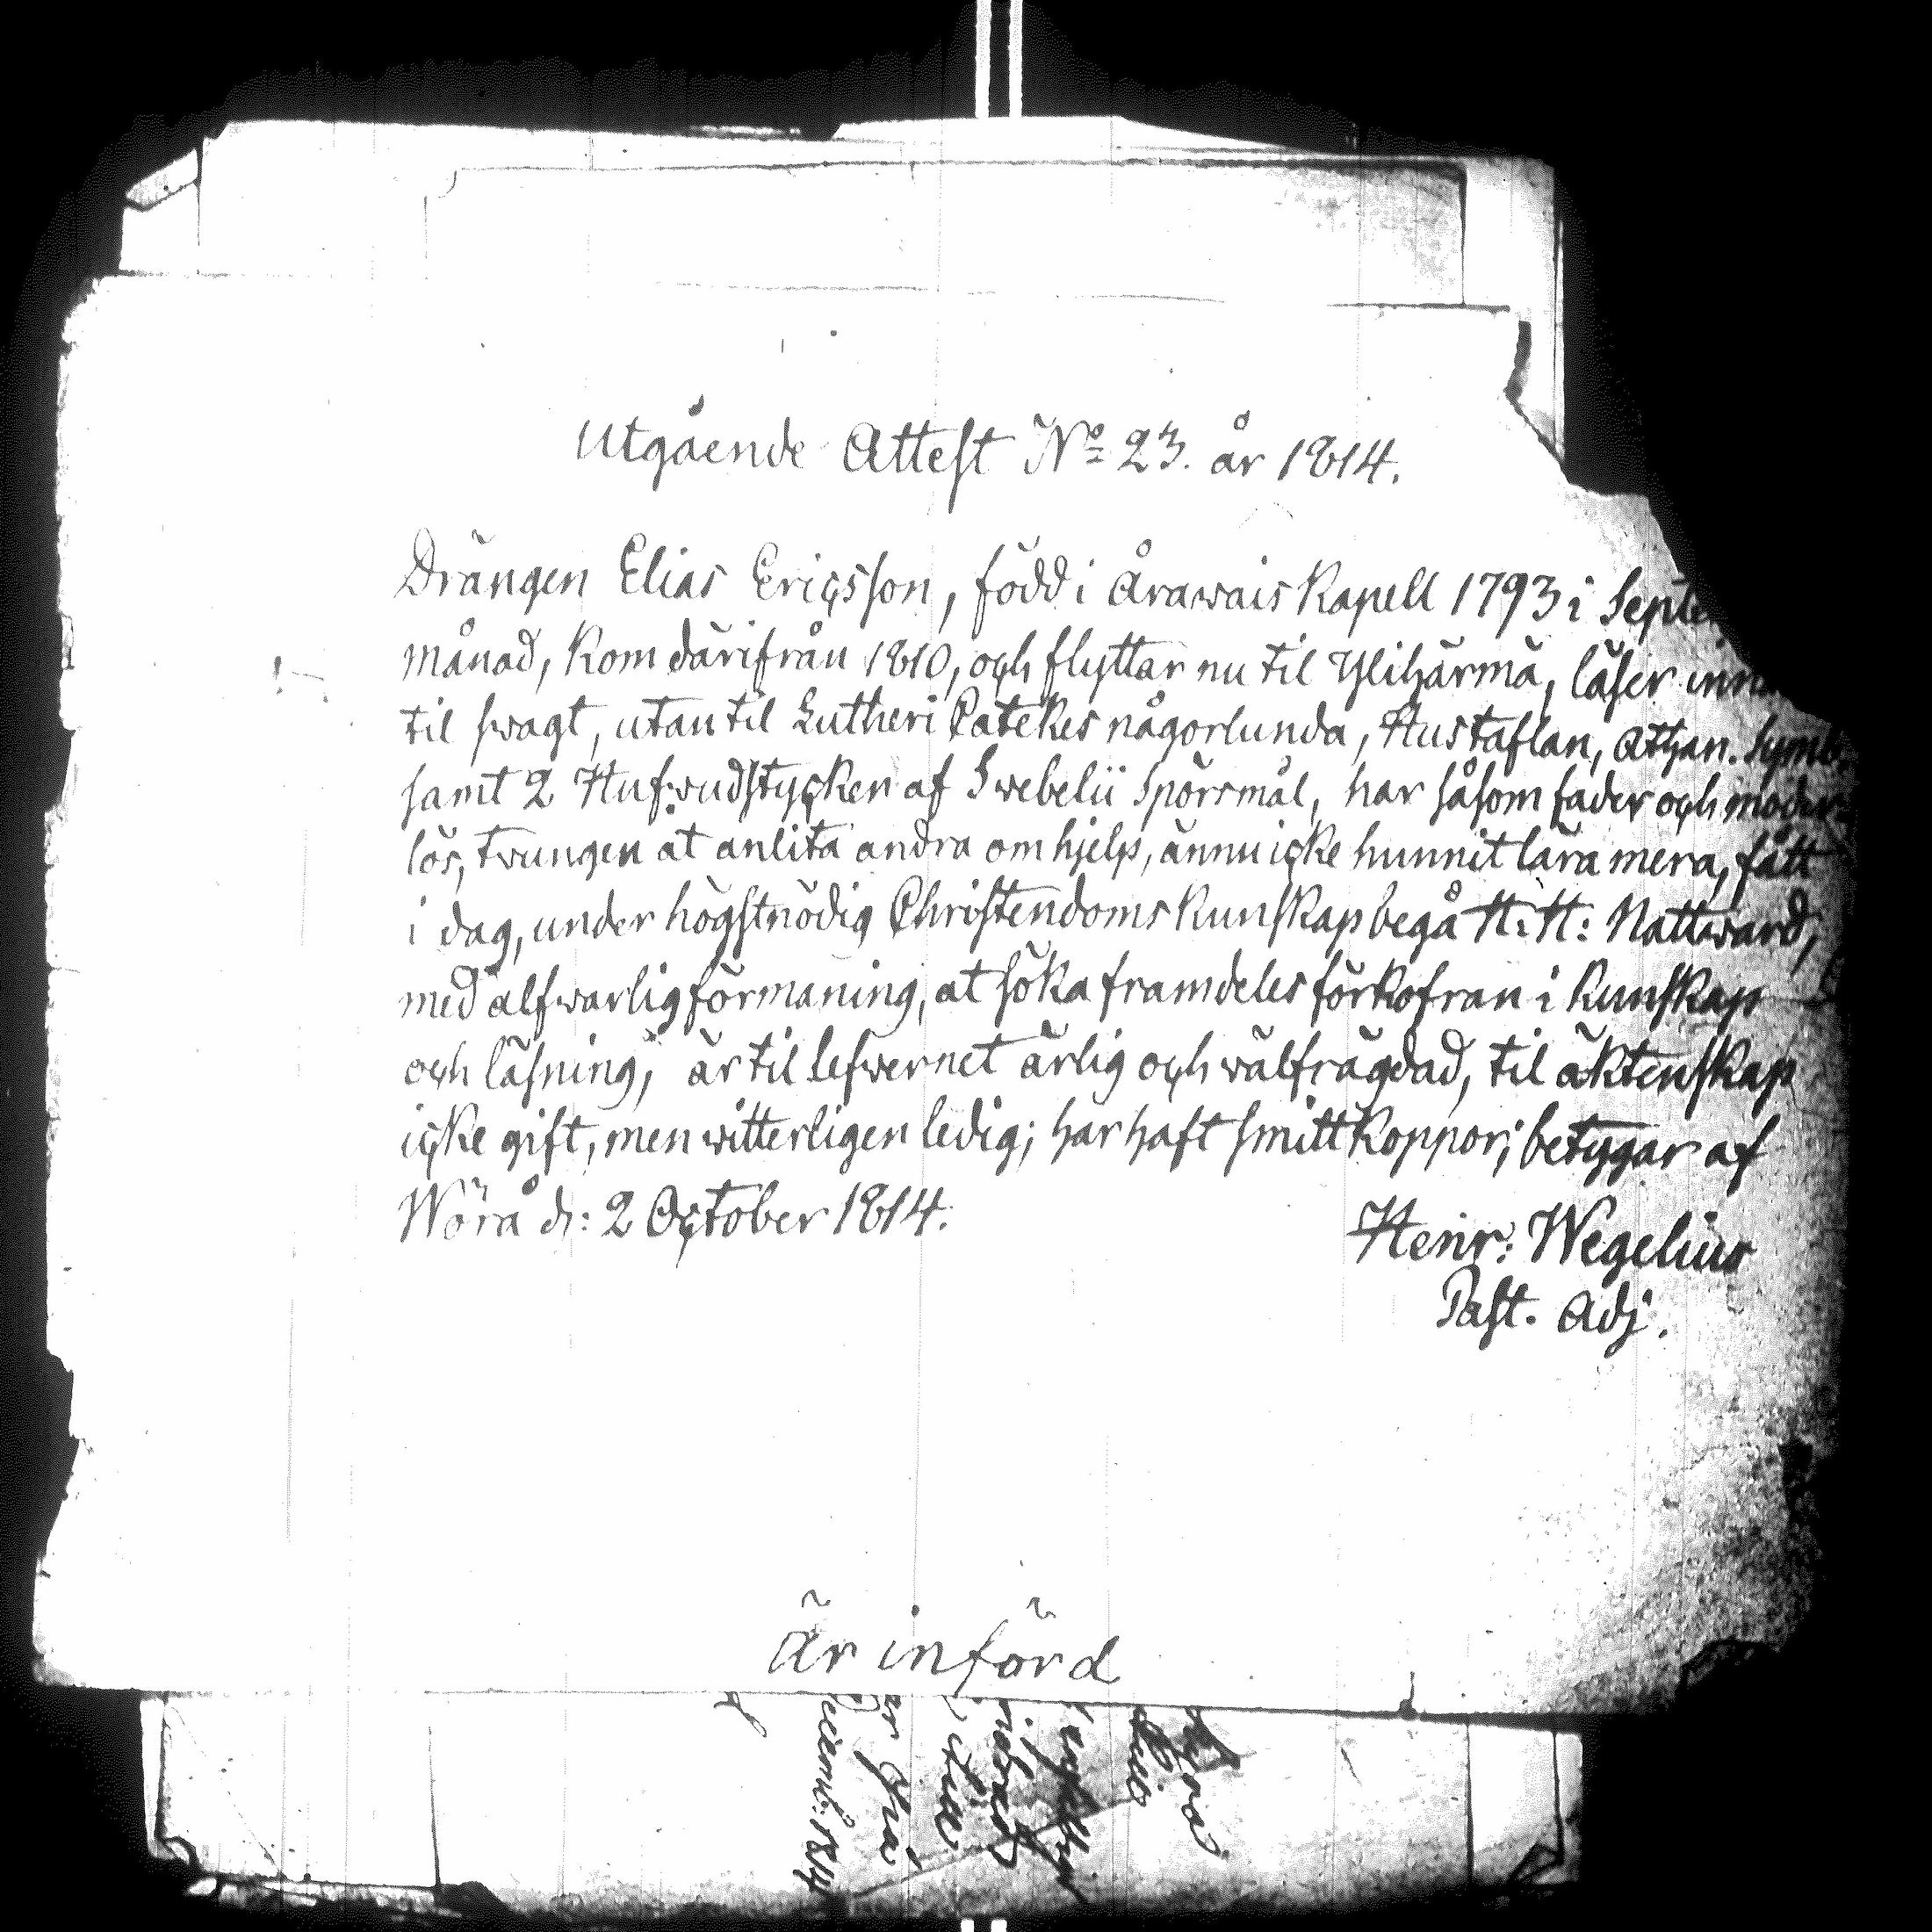 Utgående Attest No 23. år 1814.
Drängen Elias Ericsson, född i Årawais Kapell 1793 i
månad, kom därifrån 1810, och flyttar nu til Ylihärmä, läser
til swagt, utan til Lutheri Catekes någorlunda, Hustaflan, Athan. Symb.
samt 2 Hufwudstycken af Swebelii Spörsmål, har såsom fader och moder
lös, twungen at anlita andra om hjelp, ännu icke hunnit lära mera, fått
i dag, under högstnödig Christendoms Kunskap begå H: H: Nattward,
med alfwarlig förmaning, at söka framdeles förkofran i Kunskap
och läsning, är til lefwernet ärlig och wälfrägdad, til äktenskap
icke gift, men witterligen ledig; har haft smittkoppor; betygar af
Wörå d: 2 October 1814.
Henr: Wegelius
Past. Adj.
Är införd